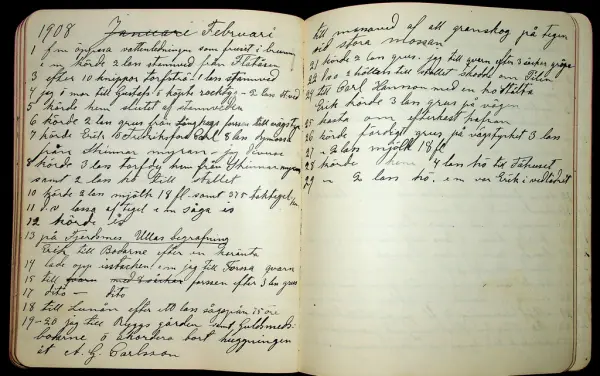 1908 Januari Februari
1 fm öppna vattenledningen som frusit i brunnen
em körde 2 lass stamved från Flatåsen
3 efter 10 knippor torfströ 1 lass stamved
4 jag ö mor till Gustafs ö köpte rocktyg - 2 lass st ved
5 körde hem slutet af stamveden
6 körde 2 lass grus från forssen till vägstyc
7 körde Erik ö Fridolfs Carl 8 lass dymossa
från Skinnar myran jag
8 körde 3 lass torfdy hem från Skinnar myran
samt 2 lass hö till stallet
10 körde 2 lass mjölk 18 fl samt 375 taktegel
11 d.v. lassa af tegel em såga is
12 körde is
13 på Fjerdsmes Ullas begrafning
Erik till Bodarne efter en
14 lade opp isstacken em jag till Forssa qvarn
15 till qvarn med 8 säckar forssen efter 3 lass grus
17 dito - dito
18 till Lunån efter 10 lass sågspån 25 öre
19-20 jag till Byggs gården samt Guldsmeds-
bodarne ö ackordera bort huggningen
åt A. G. Carlsson
till massaved af all granskog på tegen
vid stora mossan
21 körde 2 lass grus. jag till qvarn efter 3 säckar gröpe
22 hö till stallet
24 till Carl Hansson med en
Erik körde 3 lass grus på vägen
25 kasta om efterkast hafran
26 körde färdigt grus på vägstycket 3 lass
27 - 2 lass mjölk 18 fl
28 körde hem 4 lass hö till Fähuset
29 - 2 lass hö. em var Erik i vedbodet